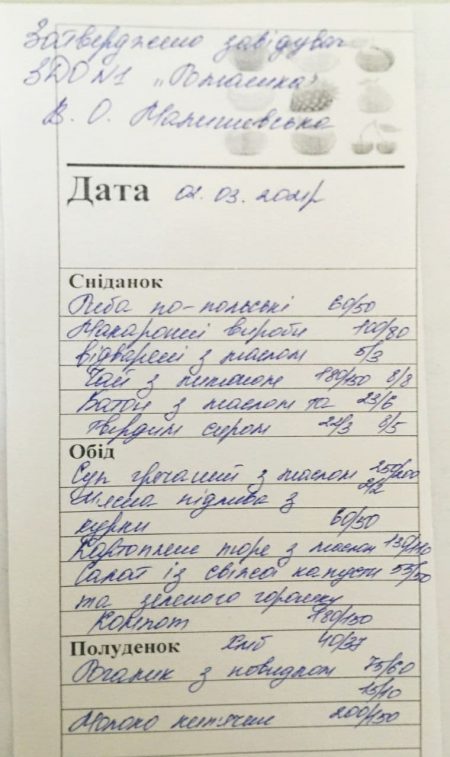 Затверджено завідувач
ЗДО №1 „Ромашка"
В. О. Малишевська
Дата 02.03.2021р
Сніданок
Риба по-польські 60/50
Макаронні вироби 100/80
відварені з маслом 5/3
Чай з лимоном 180/150 8/8
Батон з маслом та 23/6
твердим сиром 8/5
Обід
Суп гречаний з маслом 250/200
2/2
М'ясна підлива з
курки 60/50
Картопляне пюре з маслом 130/110
Салат із свіжої капусти 55/50
та зеленого горошку
Компот 180/150
Полуденок Хліб 40/37
Рогалик з повидлом 75/60
15/10
Молоко кип'ячене 200/150